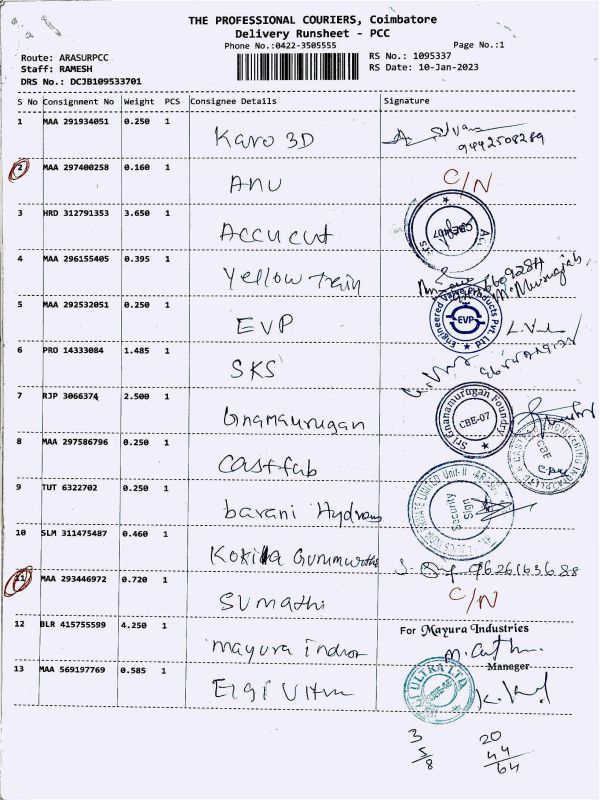 THE PROFESSIONAL COURIERS, Coimbatore
Delivery Runsheet - PCC
Phone No.:0422-3505555
Page No.:1
Route: ARASURPCC
RS No.: 1095337
Staff: RAMESH
RS Date: 10-Jan-2023
DRS No.: DCJB109533701
S No Consignment No Weight PCS Consignee Details Signature
1 MAA 291934051 0.250 1 Karo 3D
9442508289
2 MAA 297400258 0.160 1 ANU C/N
3 HRD 312791353 3.650 1 Accu cut
4 MAA 296155405 0.395 1 Yellow Train
5 MAA 292532051 0.250 1 EVP
Engineered Valve Products Pvt. Ltd
EVP
6 PRO 14333084 1.485 1 SKS
7 RJP 3066374 2.500 1 Gnamaurugan
Sri Gnanamurugan Foundry
CBE-07
8 MAA 297586796 0.250 1 Castfab
CBE
9 TUT 6322702 0.250 1 barani Hydraus
Security
Sign
10 SLM 311475487 0.460 1 Kokila Gurumurthi
9626163688
11 MAA 293446972 0.720 1 Sumathi C/N
12 BLR 415755599 4.250 1 mayura indror
For Mayura Industries
Manager
13 MAA 569197769 0.585 1 Elgi Ultra
ULTRA LTD
3 20
5 44
8 64